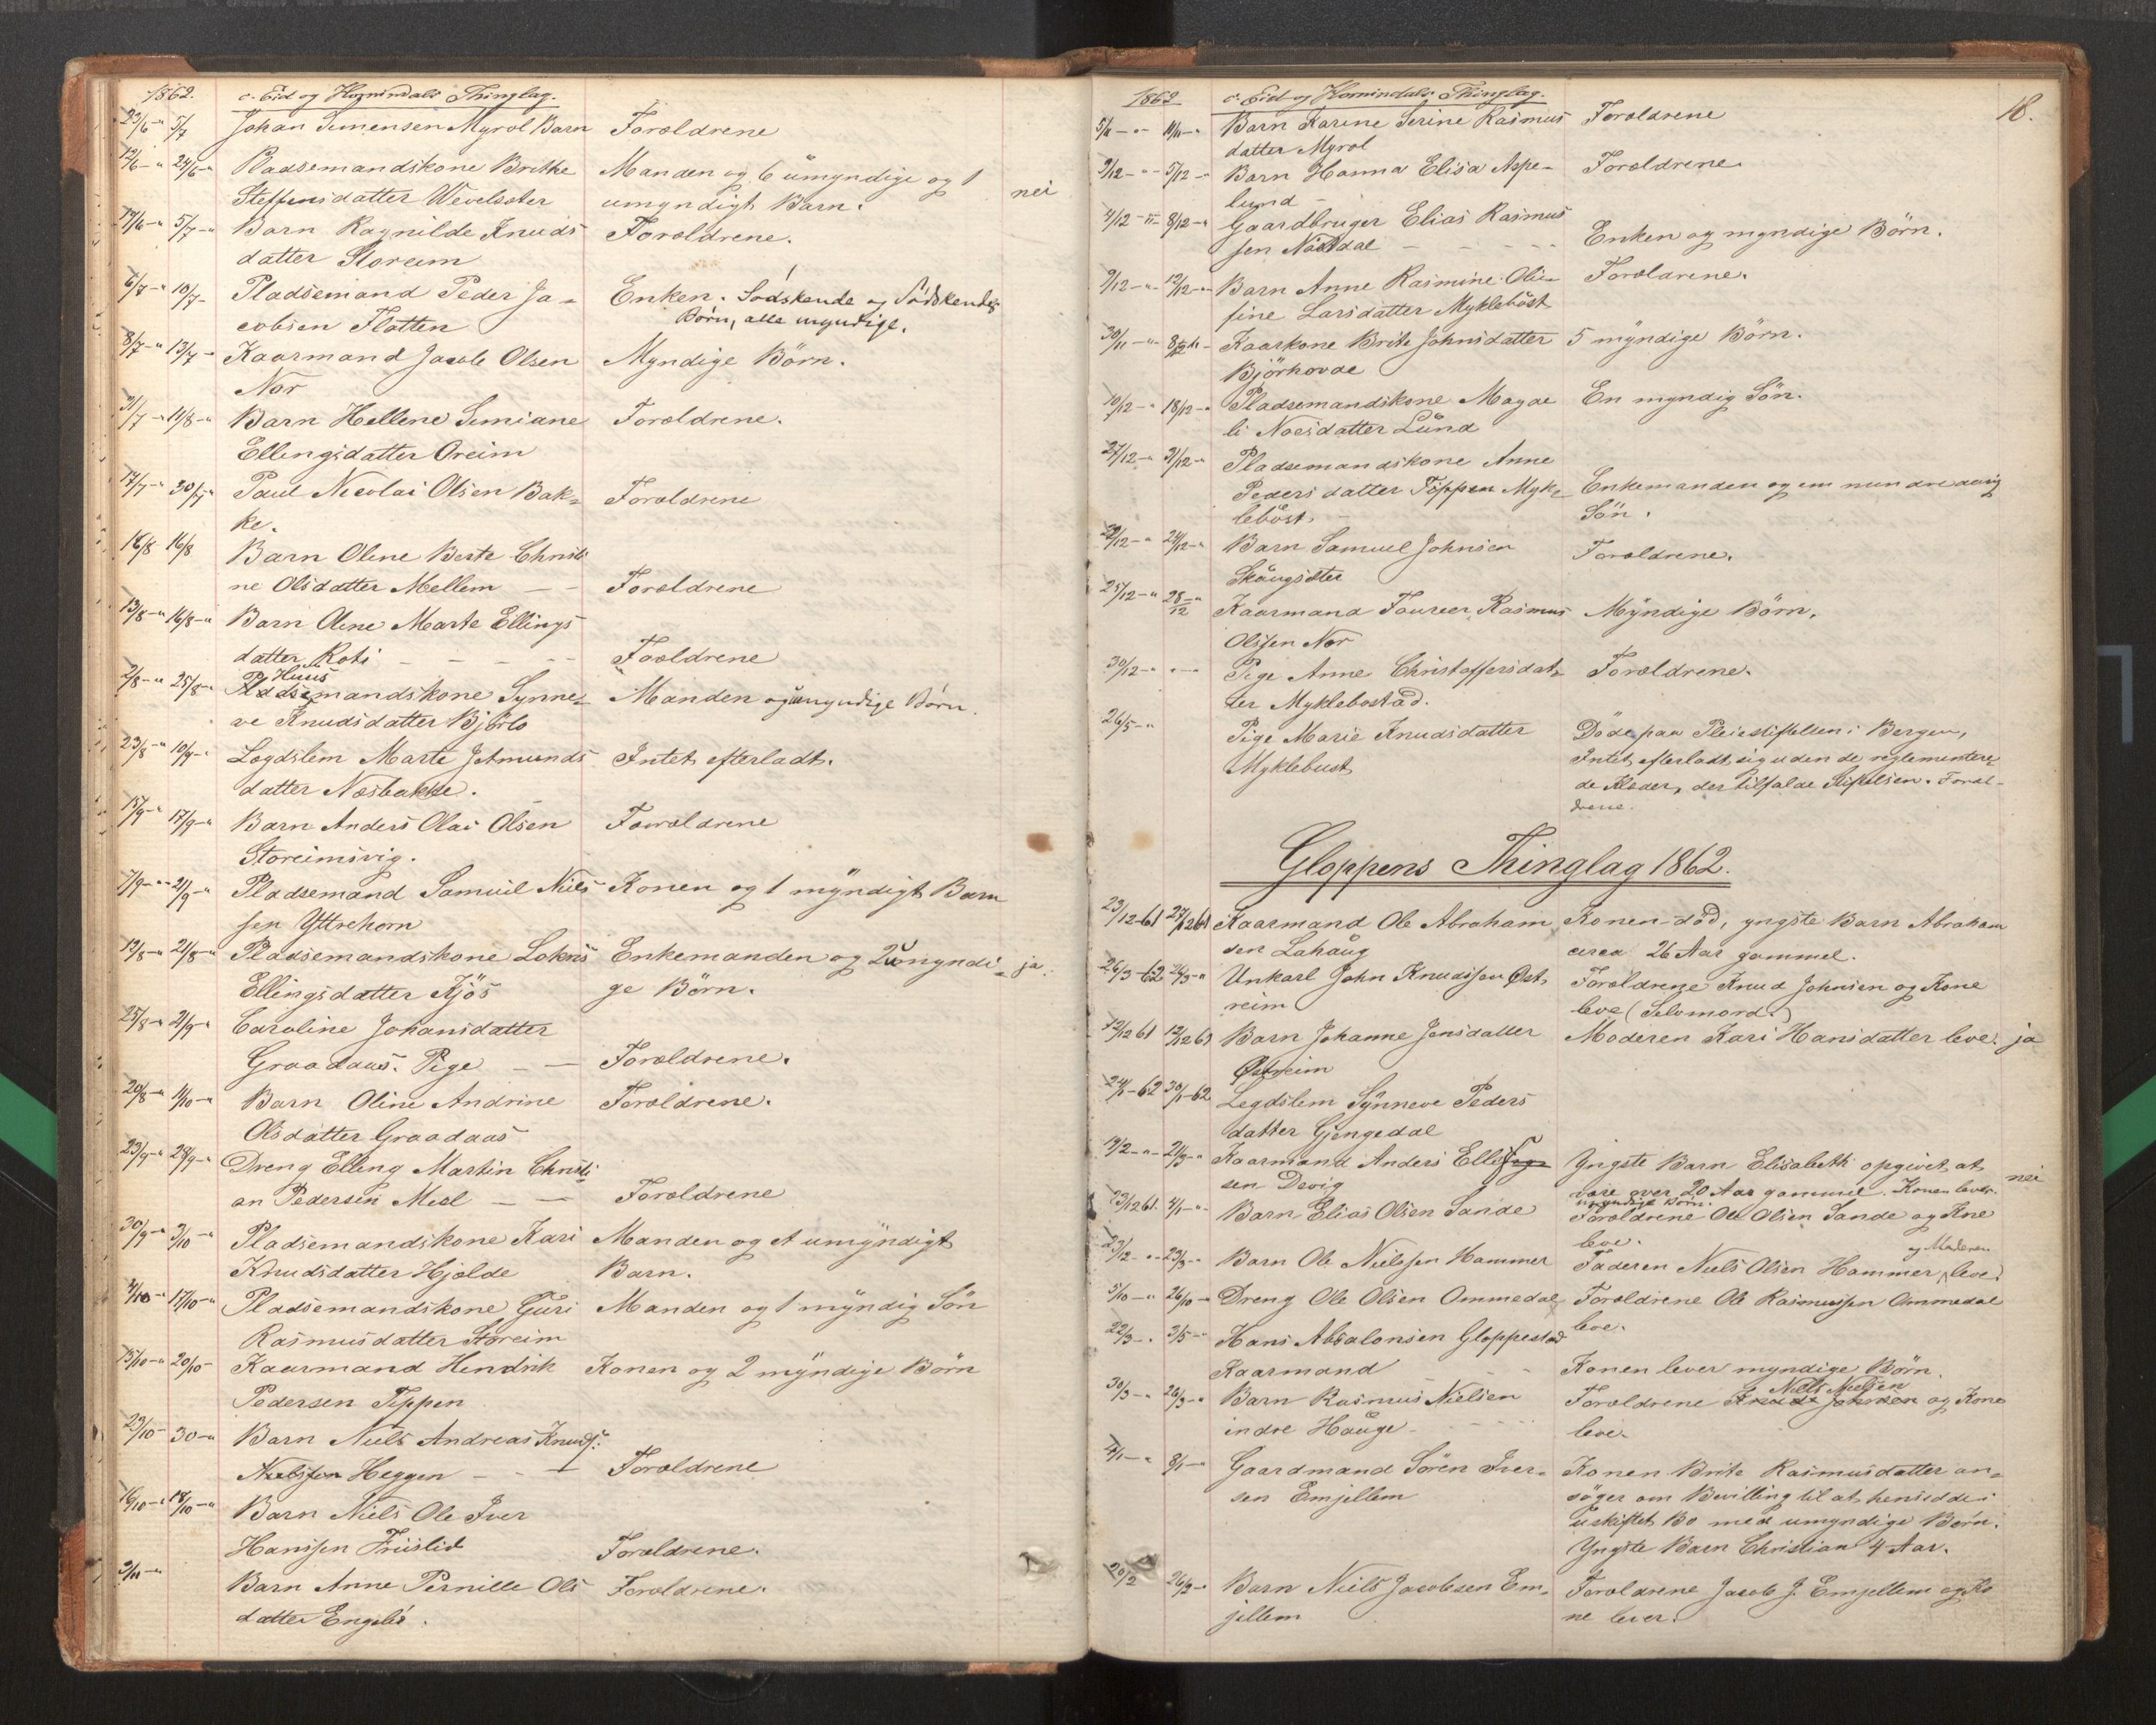 1862. c. Eid og Hornindals Thinglag.
23/6 -" 5/7 Johan Simensen Myrol Barn Forældrene
12/6 -" 24/6 -" Pladsemandskone Brithe Manden og 6 umyndige og 1
Steffensdatter Wevelsæter umyndigt Barn. nei
17/6 -" 5/7 -" Barn Ragnilde Knuds Forældrene.
datter Storeim
6/7 -" 10/7 - Pladsemand Peder Ja= Enken. Södskende og Södskendes
cobsen Flatten Börn, alle myndige.
8/7 -" 13/7 - Kaarmand Jacob Olsen Myndige Börn.
Nor
31/7 -" 11/8 -" Barn Hellene Simiane Forældrene.
Ellingsdatter Oreim
17/7 -" 30/7 -" Paul Nicolai Olsen Bak= Forældrene
ke.
16/8 16/8 Barn Oline Berte Christi
ne Olsdatter Mellem - - Forældrene
13/8 -" 16/8 -" Barn Oline Marte Ellings
datter Roti - - - - Foældrene
2/8 -" 25/8 - Huus
Pladsemandskone Synne= Manden og umyndige Börn.
ve Knudsdatter Bjørlo
23/8 -" 10/9 -" Lægdslem Marte Jetmunds Intet efterladt.
datter Næsbakke.
15/9 -" 17/9 -" Barn Anders Olai Olsen Forældrene
Storeimsvig.
7/9 -" 21/9 -" Pladsemand Samuel Niels Konen og 1 myndigt Barn
sen Yttrehorn
12/8 -" 21/8 -" Pladsemandskone Enkemanden og 2 umyndi= ja.
Ellingsdatter Kjös ge Börn.
25/8 -" 21/9 -" Caroline Johansdatter
Graadaas. Pige - - Forældrene.
20/8 -" 11/10 -" Barn Oline Andrine Forældrene.
Olsdatter Graadaas
23/9 -" 28/9 -" Dreng Elling Martin Christi
an Pedersen Meel - - Forældrene
30/9 -" 3/10 -" Pladsemandskone Kari Manden og et umyndigt
Knudsdatter Hjelde Barn.
4/10 -" 17/10 -" Pladsemandskone Guri Manden og 1 myndig Sön
Rasmusdatter Storeim
15/10 -" 20/10 - Kaarmand Hendrik Konen og 2 myndige Börn
Pedersen Tippen
23/10 - 30 -" Barn Niels Andreas Knuds:
Nielssen Heggen - - - Forældrene
16/10 -" 18/10 -" Barn Niels Ole Iver
Hanssen Friislid Forældrene.
3/11 -" Barn Anne Pernille Ols Forældrene.
datter Engelö.
18.
1862 c. Eid og Hornindals Thinglag.
5/11 -"- 11/11 -" Barn Karine Serine Rasmus Forældrene
datter Myrol
2/12 -"- 5/12 -" Barn Hanna Elisa Aspe- Forældrene.
lund -
4/12 -"- 8/12 -" Gaardbruger Elias Rasmus
sen Nosdal - - - - Enken og myndige Börn.
9/12 -"- 12/12 -" Barn Anne Rasmine Oli= Forældrene.
fine Larsdatter Mykleböst
30/11 -"- 8/12 - Kaarkone Brite Johnsdatter 5 myndige Börn.
Björhovde
10/12 -" 18/12 -" Pladsemandskone Magde En myndig Sön.
li Noesdatter Lund
27/12 -" 31/12 -" Pladsemandskone Anne
Pedersdatter Tippen Myk= Enkemanden og en mindreaarig
lebøst. - Sön.
22/12 -" 24/12 -" Barn Samuel Johnsen Forældrene.
Skougsæter
25/12 -" 28/12 -" Kaarmand Foureer Rasmus Myndige Börn.
Olssen Nor
30/12 -" "-- Pige Anne Christoffersdat= Forældrene.
ter Myklebostad.
26/5 -" Pige Marie Knudsdatter Döde paa Pleiestiftelsen i Bergen,
Myklebust Intet efterladt sig uden de reglementere=
de Klæder, der tilfaldt Stiftelsen. Foræl-
drene.
Gloppens Thinglag 1862.
23/12-61 27/12 61 Kaarmand Ole Abraham Konen död, yngste Barn Abraham
sen Lahaug circa 26 Aar gammel.
26/3-62 29/3 -" Unkarl John Knudssen Øst= Forældrene Knud Johnsen og Kone
reim leve (Selvmord.)
12/12 61 12/12 61 Barn Johanne Jensdatter Moderen Kari Hansdatter lever. ja
Østreim
24/1-62 30/1-62 Legdslem Synneve Peders
datter Gjengedal
19/2 -"- 21/3 -" Kaarmand Anders Elling Yngste Barn Elisabeth opgivet at nei
sen Devig være over 20 Aar gammel. Konen lever.
myndige Börn.
23/12 61. 4/1 -"- Barn Elias Olsen Sande Forældrene Ole Olsen Sande og Kone
leve.
23/12 -" 23/3 -" Barn Ole Nielssen Hammer Faderen Niels Olsen Hammer og Moderen leve.
5/10 -" 26/10 -" Dreng Ole Olsen Ommedal Forældrene Ole Rasmussen Ommedal
leve.
22/3 -" 3/5 -" Hans Absalonsen Gloppestad
Kaarmand Konen lever myndige Börn.
30/3 -" 26/3 -" Barn Rasmus Nielsen Forældrene Knud Johnsen Niels Nielsen og Kone
indre Hauge - leve.
4/1 -" 8/1 -" Gaardmand Sören Iver= Konen Brite Rasmusdatter an=
sen Emjellem söger om Bevilling til at hensidde i
uskiftet Bo med umyndige Börn.
Yngste Barn Christian 4 Aar.
20/2 26/3 -" Barn Niels Jacobsen Em= Forældrene Jacob J. Emjellem og Ko
jellem ne lever.